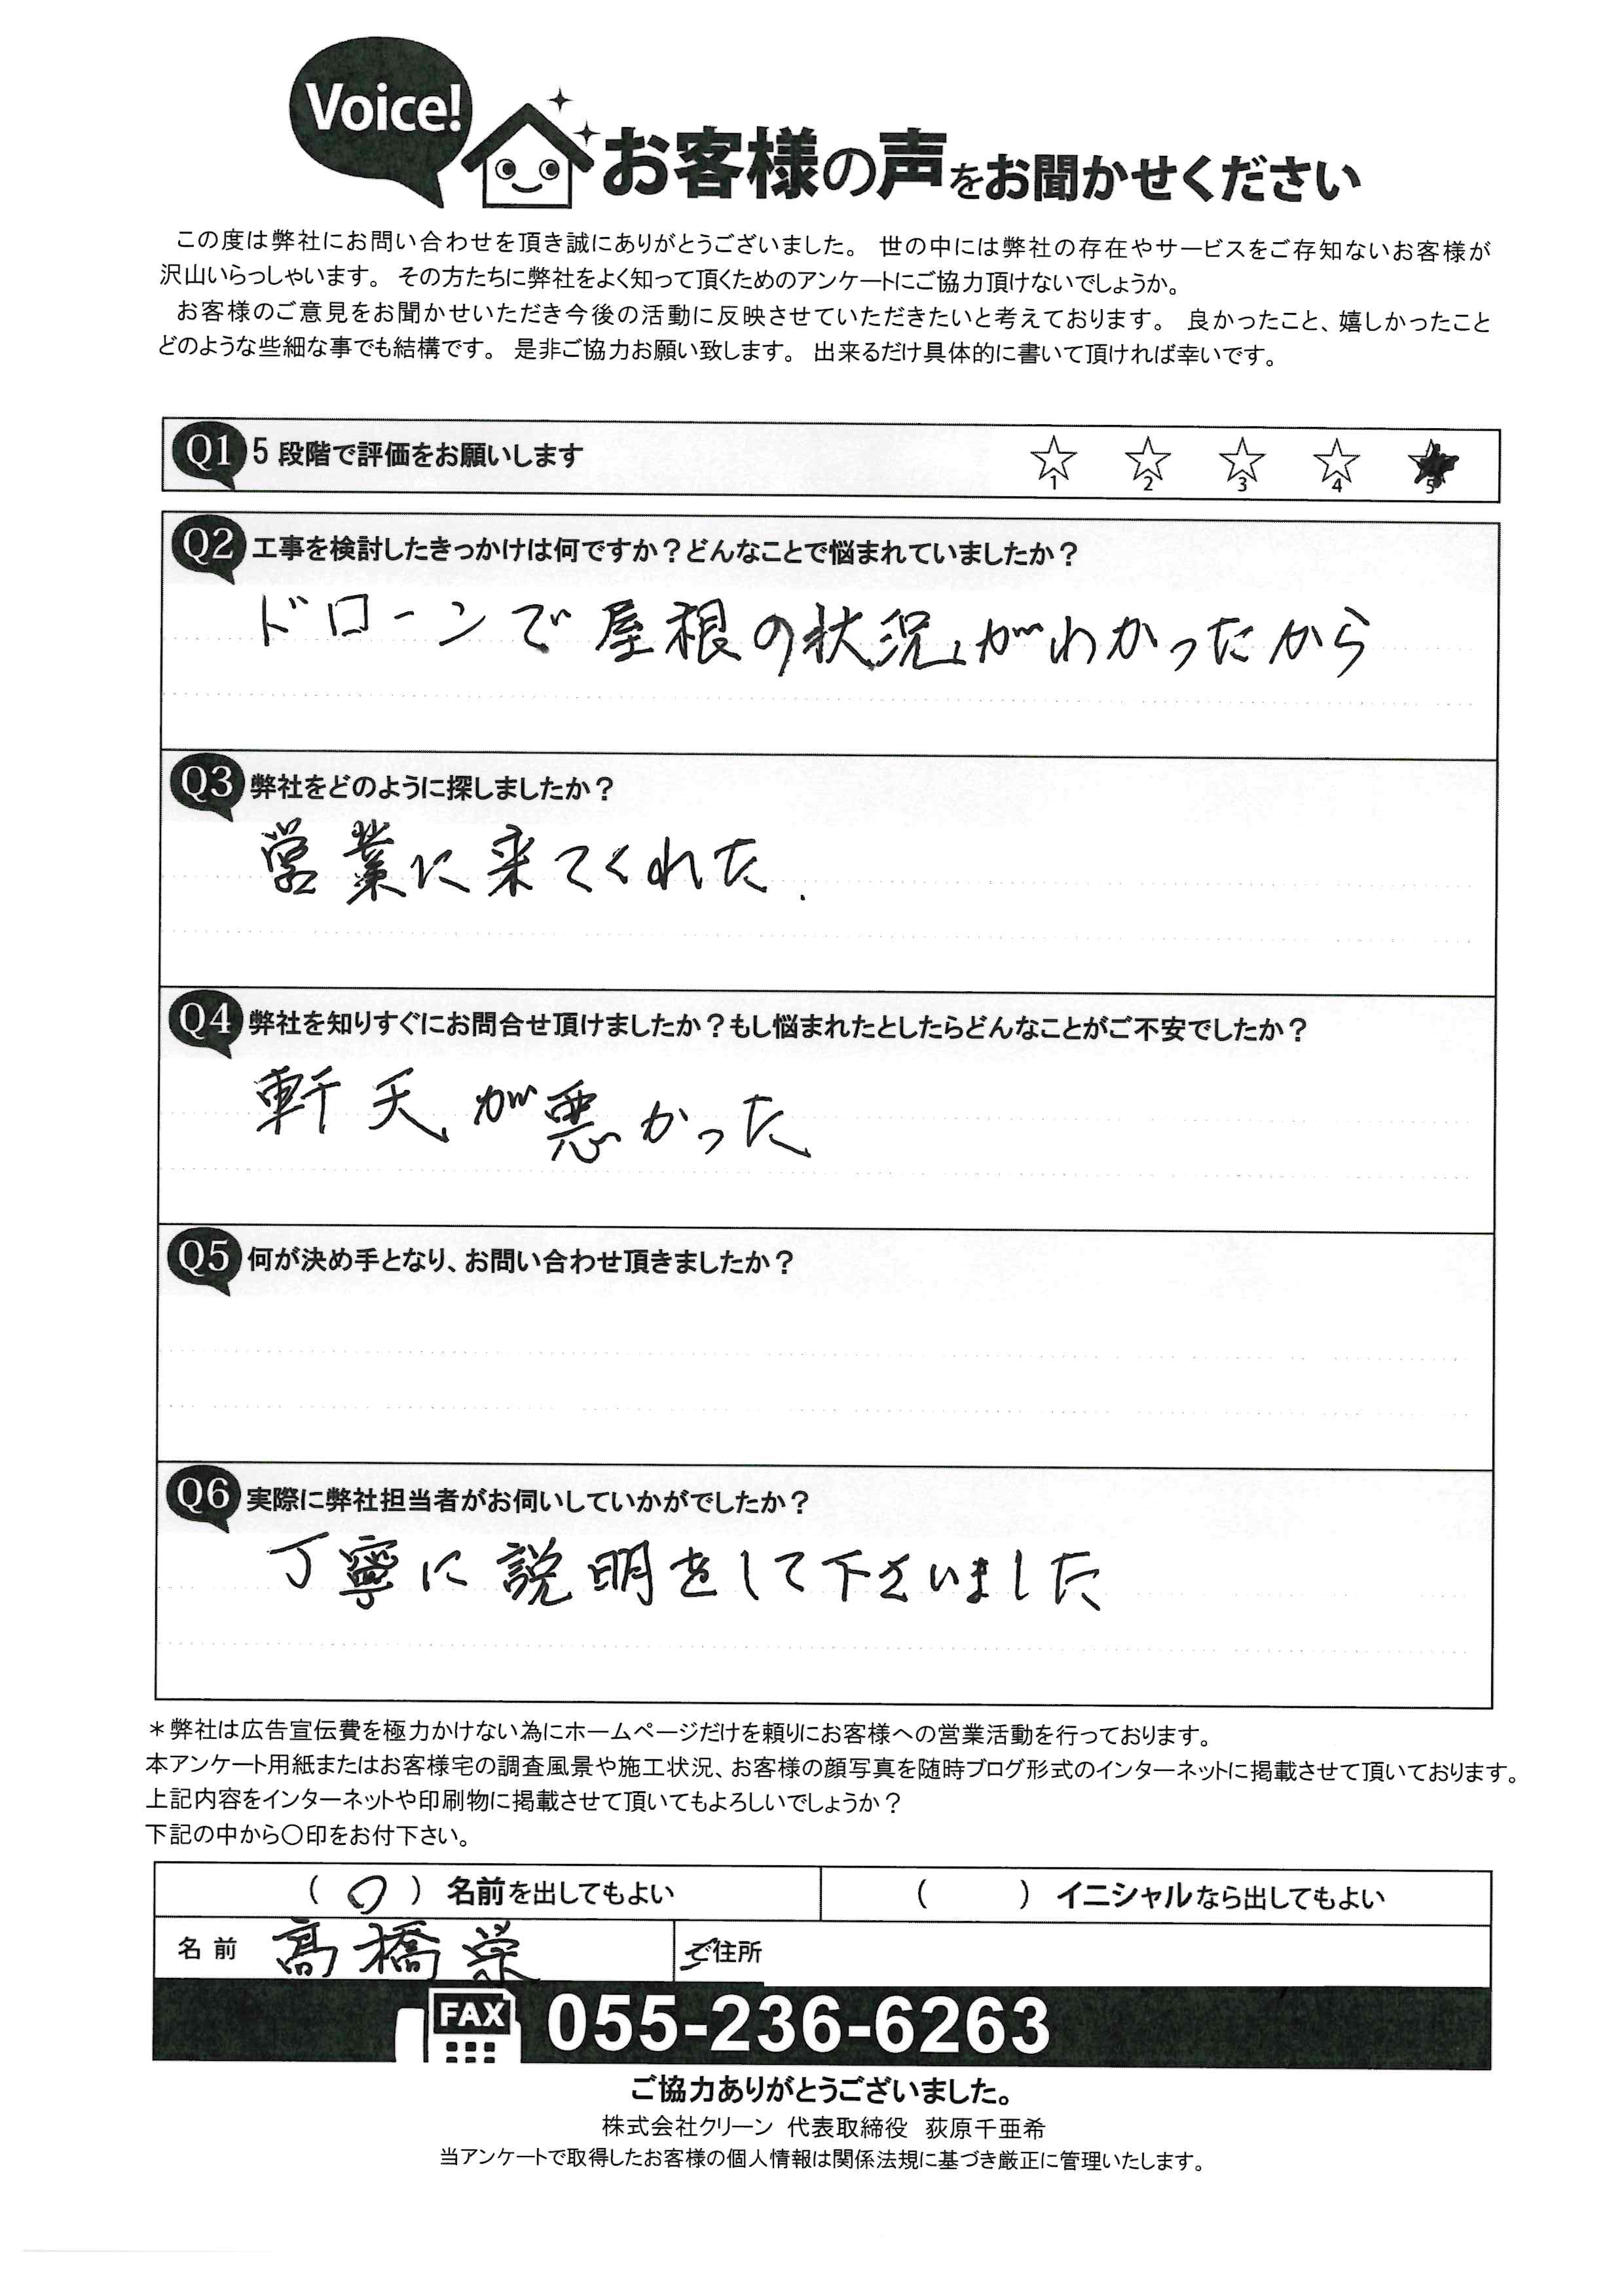 Voice!
お客様の声をお聞かせください
この度は弊社にお問い合わせを頂き誠にありがとうございました。 世の中には弊社の存在やサービスをご存知ないお客様が
沢山いらっしゃいます。 その方たちに弊社をよく知って頂くためのアンケートにご協力頂けないでしょうか。
お客様のご意見をお聞かせいただき今後の活動に反映させていただきたいと考えております。 良かったこと、嬉しかったこと
どのような些細な事でも結構です。 是非ご協力お願い致します。 出来るだけ具体的に書いて頂ければ幸いです。
Q1 5段階で評価をお願いします ☆1 ☆2 ☆3 ☆4 ★5
Q2 工事を検討したきっかけは何ですか？どんなことで悩まれていましたか？
ドローンで屋根の状況がわかったから
Q3 弊社をどのように探しましたか？
営業に来てくれた.
Q4 弊社を知りすぐにお問合せ頂けましたか？もし悩まれたとしたらどんなことがご不安でしたか？
軒天が悪かった
Q5 何が決め手となり、お問い合わせ頂きましたか？
Q6 実際に弊社担当者がお伺いしていかがでしたか？
丁寧に説明をして下さいました
＊弊社は広告宣伝費を極力かけない為にホームページだけを頼りにお客様への営業活動を行っております。
本アンケート用紙またはお客様宅の調査風景や施工状況、お客様の顔写真を随時ブログ形式のインターネットに掲載させて頂いております。
上記内容をインターネットや印刷物に掲載させて頂いてもよろしいでしょうか？
下記の中から〇印をお付下さい。
（ 〇 ）名前を出してもよい （　　）イニシャルなら出してもよい
名前 髙橋栄 ご住所
FAX 055-236-6263
ご協力ありがとうございました。
株式会社クリーン 代表取締役 荻原千亜希
当アンケートで取得したお客様の個人情報は関係法規に基づき厳正に管理いたします。